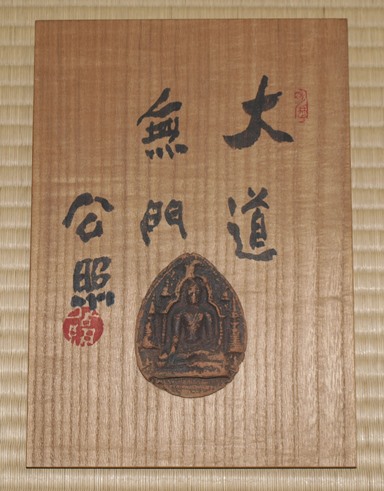 大道
無門
公照